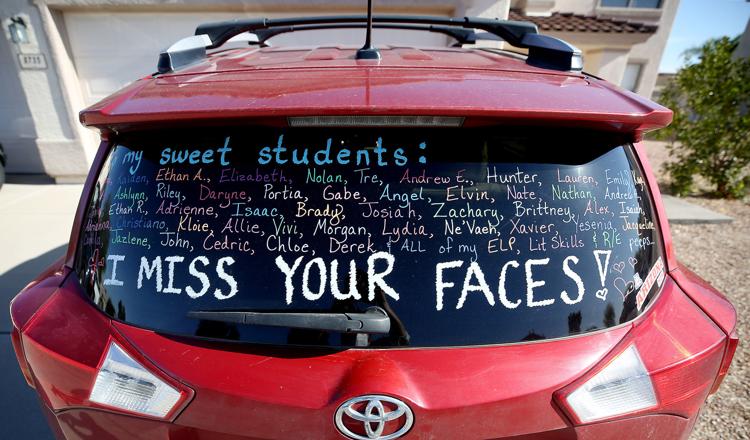 my sweet students:
Kaiden, Ethan A., Elizabeth, Nolan, Tre, Andrew E., Hunter, Lauren, Emily
Ashlynn, Riley, Daryne, Portia, Gabe, Angel, Elvin, Nate, Nathan, Andrew
Ethan R., Adrienne, Isaac, Brady, Josiah, Zachary, Brittney, Alex, Isaiah,
Christiano, Kloie, Allie, Vivi, Morgan, Lydia, Ne'Vaeh, Xavier, Yesenia, Jacqueline
Jazlene, John, Cedric, Chloe, Derek & ALL of my ELP, Lit Skills & R/E peeps...
I MISS YOUR FACES!